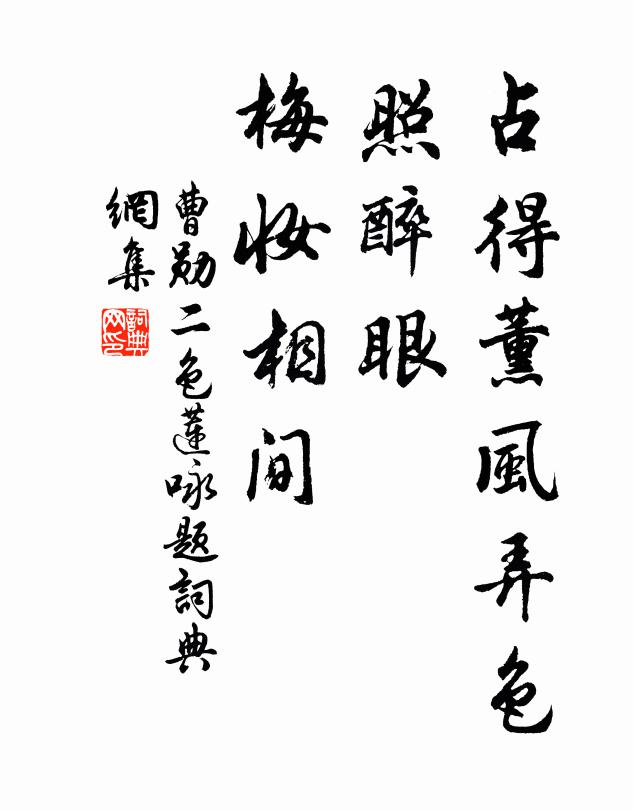 占得薰風弄色
照醉眼
梅妝相間
曹勛二色蓮咏題詞典
網集
詞典网印